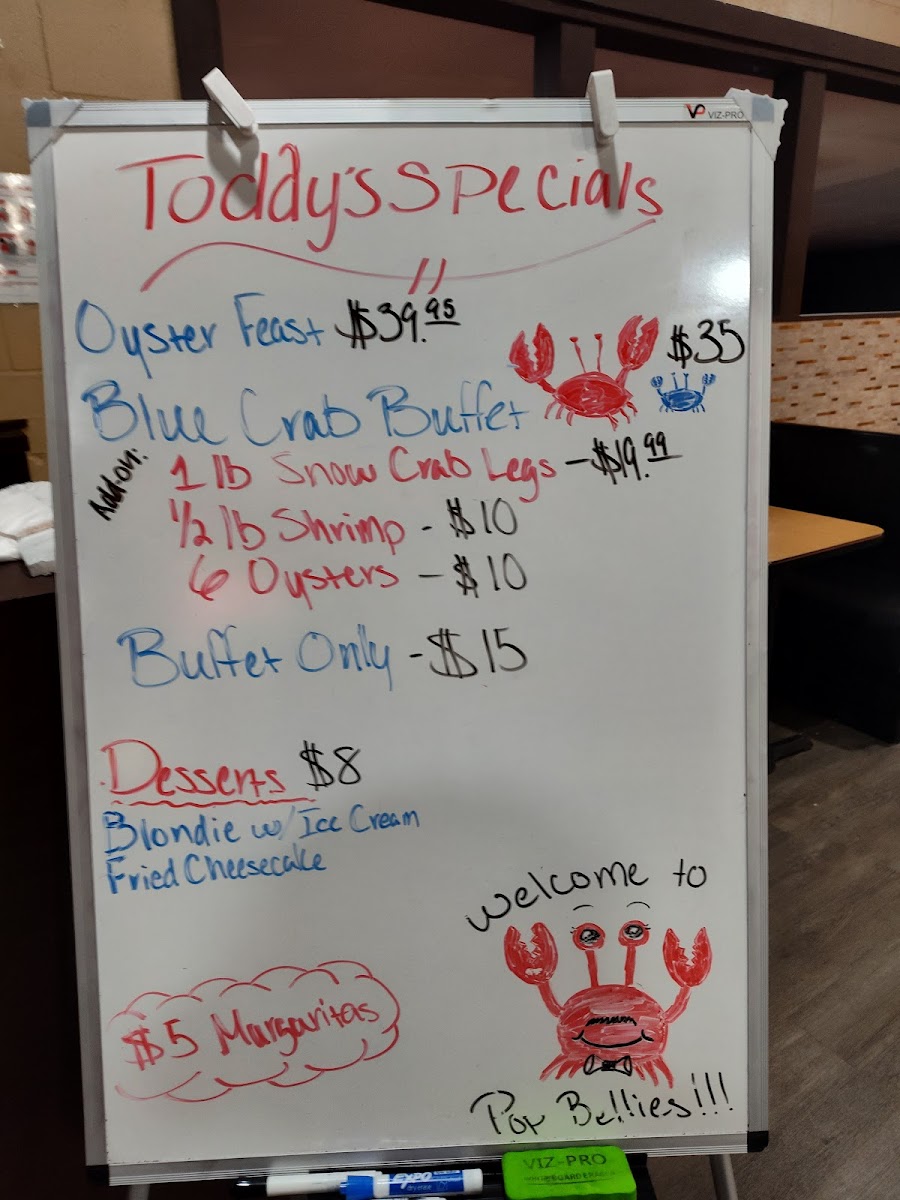 VP VIZ-PRO
Toddy's Specials
Oyster Feast $39.95
$35
Blue Crab Buffet
Add-on:
1 lb Snow Crab Legs - $19.99
1/2 lb Shrimp - $10
6 Oysters - $10
Buffet Only - $15
Desserts $8
Blondie w/ Ice Cream
Fried Cheesecake
Welcome to
$5 Margaritas
Pop Bellies!!!
EXPO
VIZ-PRO